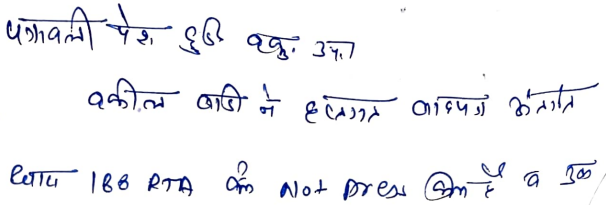 पत्रावली पेश हुई वकु. उप.
वकील वादी ने हस्तगत वादपत्र अंतर्गत
धारा 188 RTA को Not press किया है व उक्त